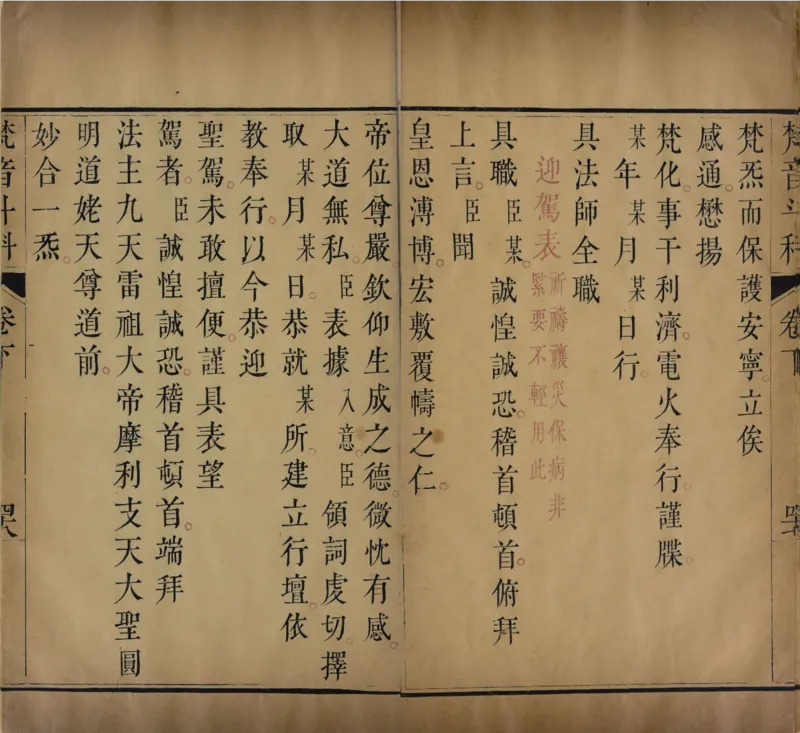 梵音斗科 卷下
梵炁而保護安寧。立俟
感通。懋揚
梵化。事干利濟。電火奉行。謹牒。
某年某月某日行。
具法師全職
迎駕表 祈禱禳災保病非
緊要不輕用此
具職臣某。誠惶誠恐。稽首頓首。俯拜
上言。臣聞
皇恩溥博。宏敷覆幬之仁。
帝位尊嚴。欽仰生成之德。微忱有感。
大道無私。臣表據入意。臣領詞虔切。擇
取某月某日。恭就某所。建立行壇。依
教奉行。以今恭迎
聖駕。未敢擅便。謹具表望
駕者。臣誠惶誠恐。稽首頓首。端拜
法主九天雷祖大帝摩利支天大聖圓
明道姥天尊道前。
妙合一炁。
梵音斗科 卷下